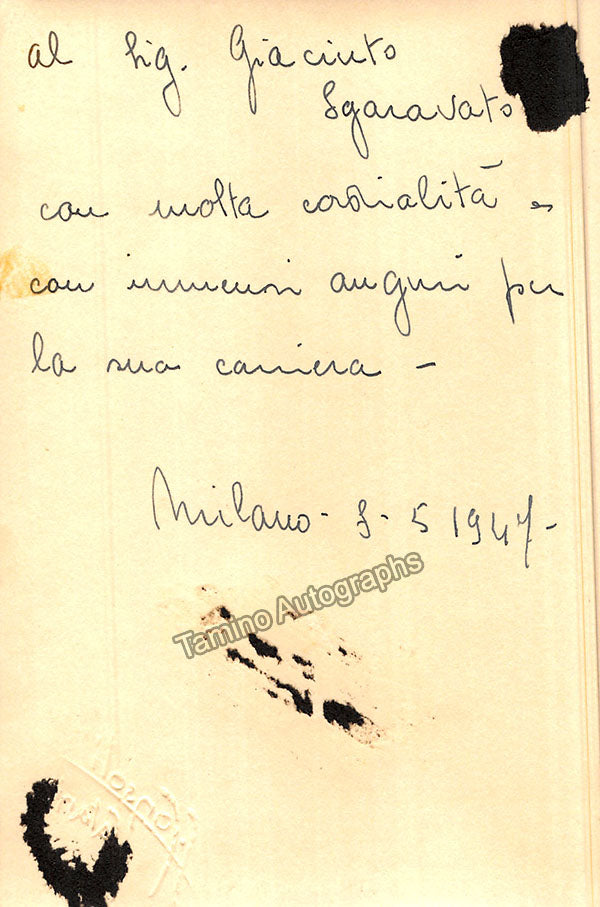 al Sig. Giacinto
Sgaravato
con molta cordialità e
con immensi auguri per
la sua carriera -
Milano - 8 - 5 1947 -
Tamino Autographs